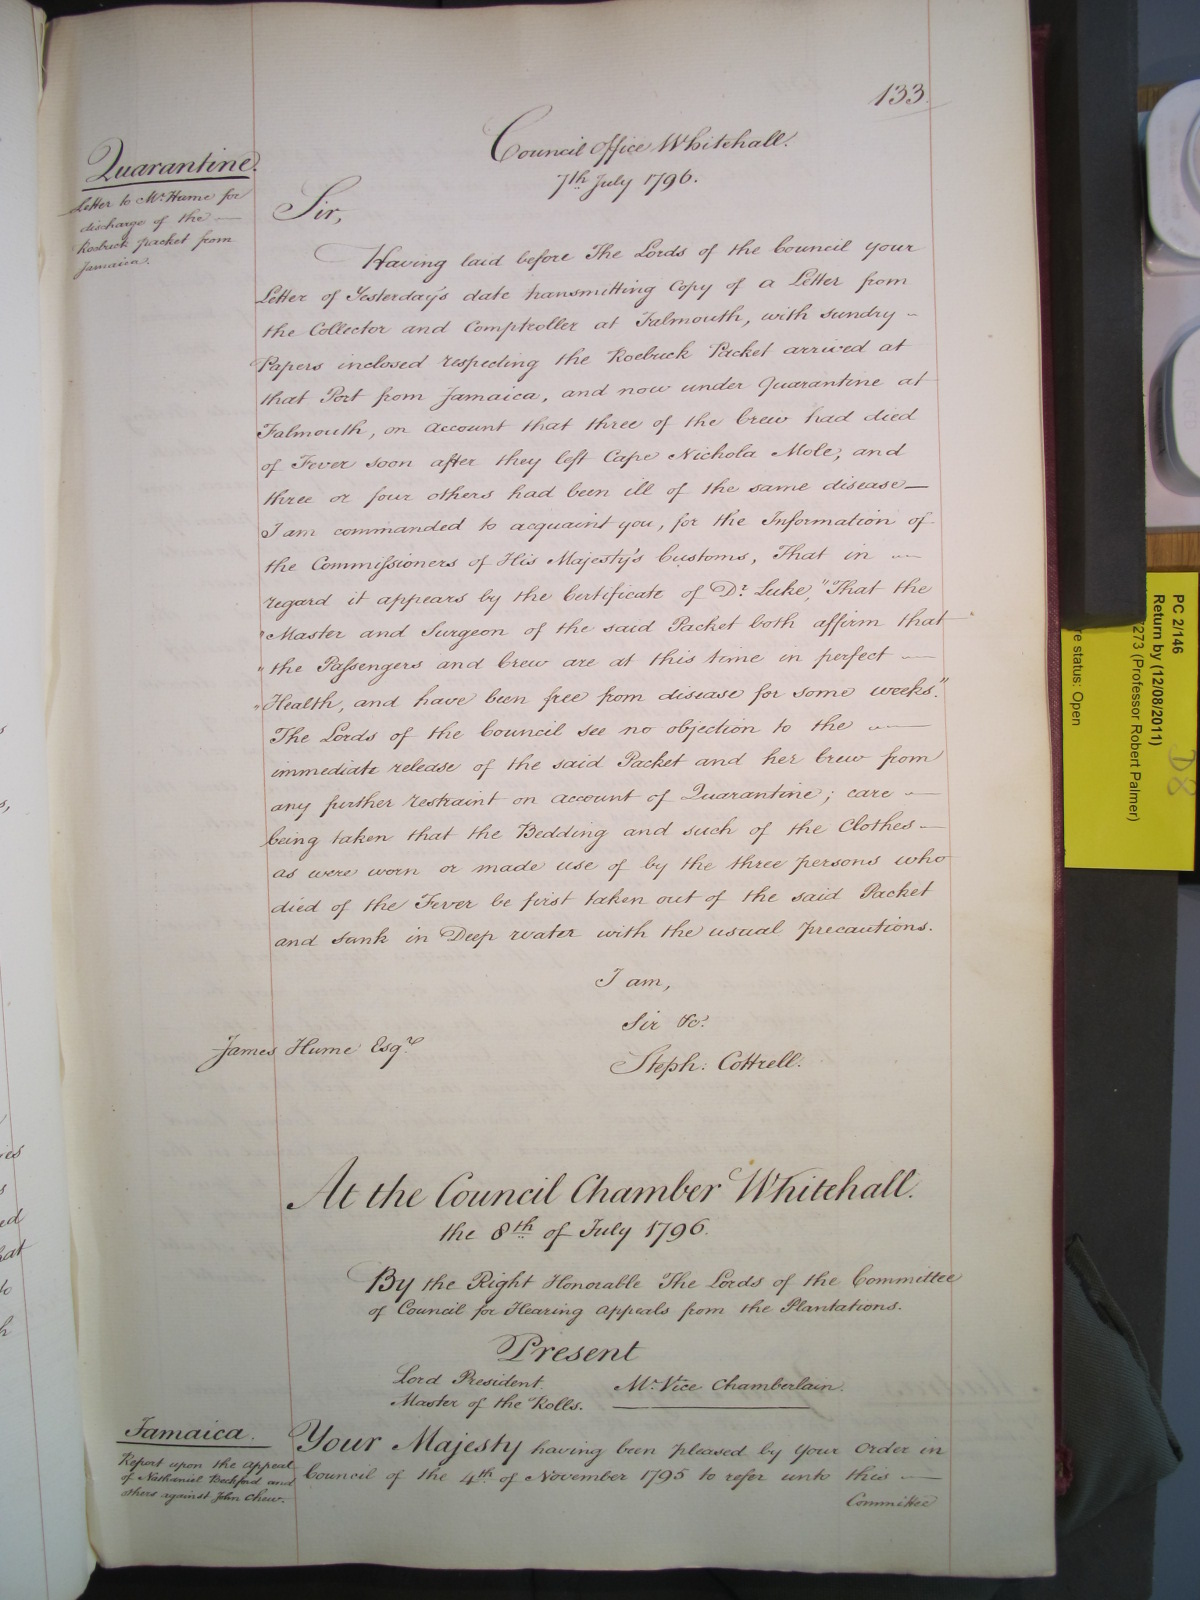 133.
Council Office Whitehall.
7th July 1796.
Quarantine.
Letter to Mr. Hume for
discharge of the
Roebuck packet from
Jamaica.
Sir,
Having laid before The Lords of the Council your
Letter of Yesterday's date transmitting Copy of a Letter from
the Collector and Comptroller at Falmouth, with sundry
Papers inclosed respecting the Roebuck Packet arrived at
that Port from Jamaica, and now under Quarantine at
Falmouth, on account that three of the Crew had died
of Fever soon after they left Cape Nichola Mole, and
three or four others had been ill of the same disease —
I am commanded to acquaint you, for the Information of
the Commissioners of His Majesty's Customs, That in
regard it appears by the Certificate of Dr. Luke, "That the
"Master and Surgeon of the said Packet both affirm that
"the Passengers and Crew are at this time in perfect
"Health, and have been free from disease for some weeks."
The Lords of the Council see no objection to the
immediate release of the said Packet and her Crew from
any further restraint on account of Quarantine; care
being taken that the Bedding and such of the Clothes
as were worn or made use of by the three persons who
died of the Fever be first taken out of the said Packet
and sunk in Deep water with the usual Precautions.
I am,
Sir &c.
James Hume Esqre
Steph: Cottrell.
At the Council Chamber Whitehall.
the 8th of July 1796.
By the Right Honorable The Lords of the Committee
of Council for Hearing Appeals from the Plantations.
Present
Lord President. Mr. Vice Chamberlain.
Master of the Rolls.
Jamaica.
Report upon the appeal
of Nathaniel Beckford and
others against John Chew.
Your Majesty having been pleased by Your Order in
Council of the 4th of November 1795 to refer unto this
Committee
PC 2/146
Return by (12/08/2011)
273 (Professor Robert Palmer)
re status: Open
D8